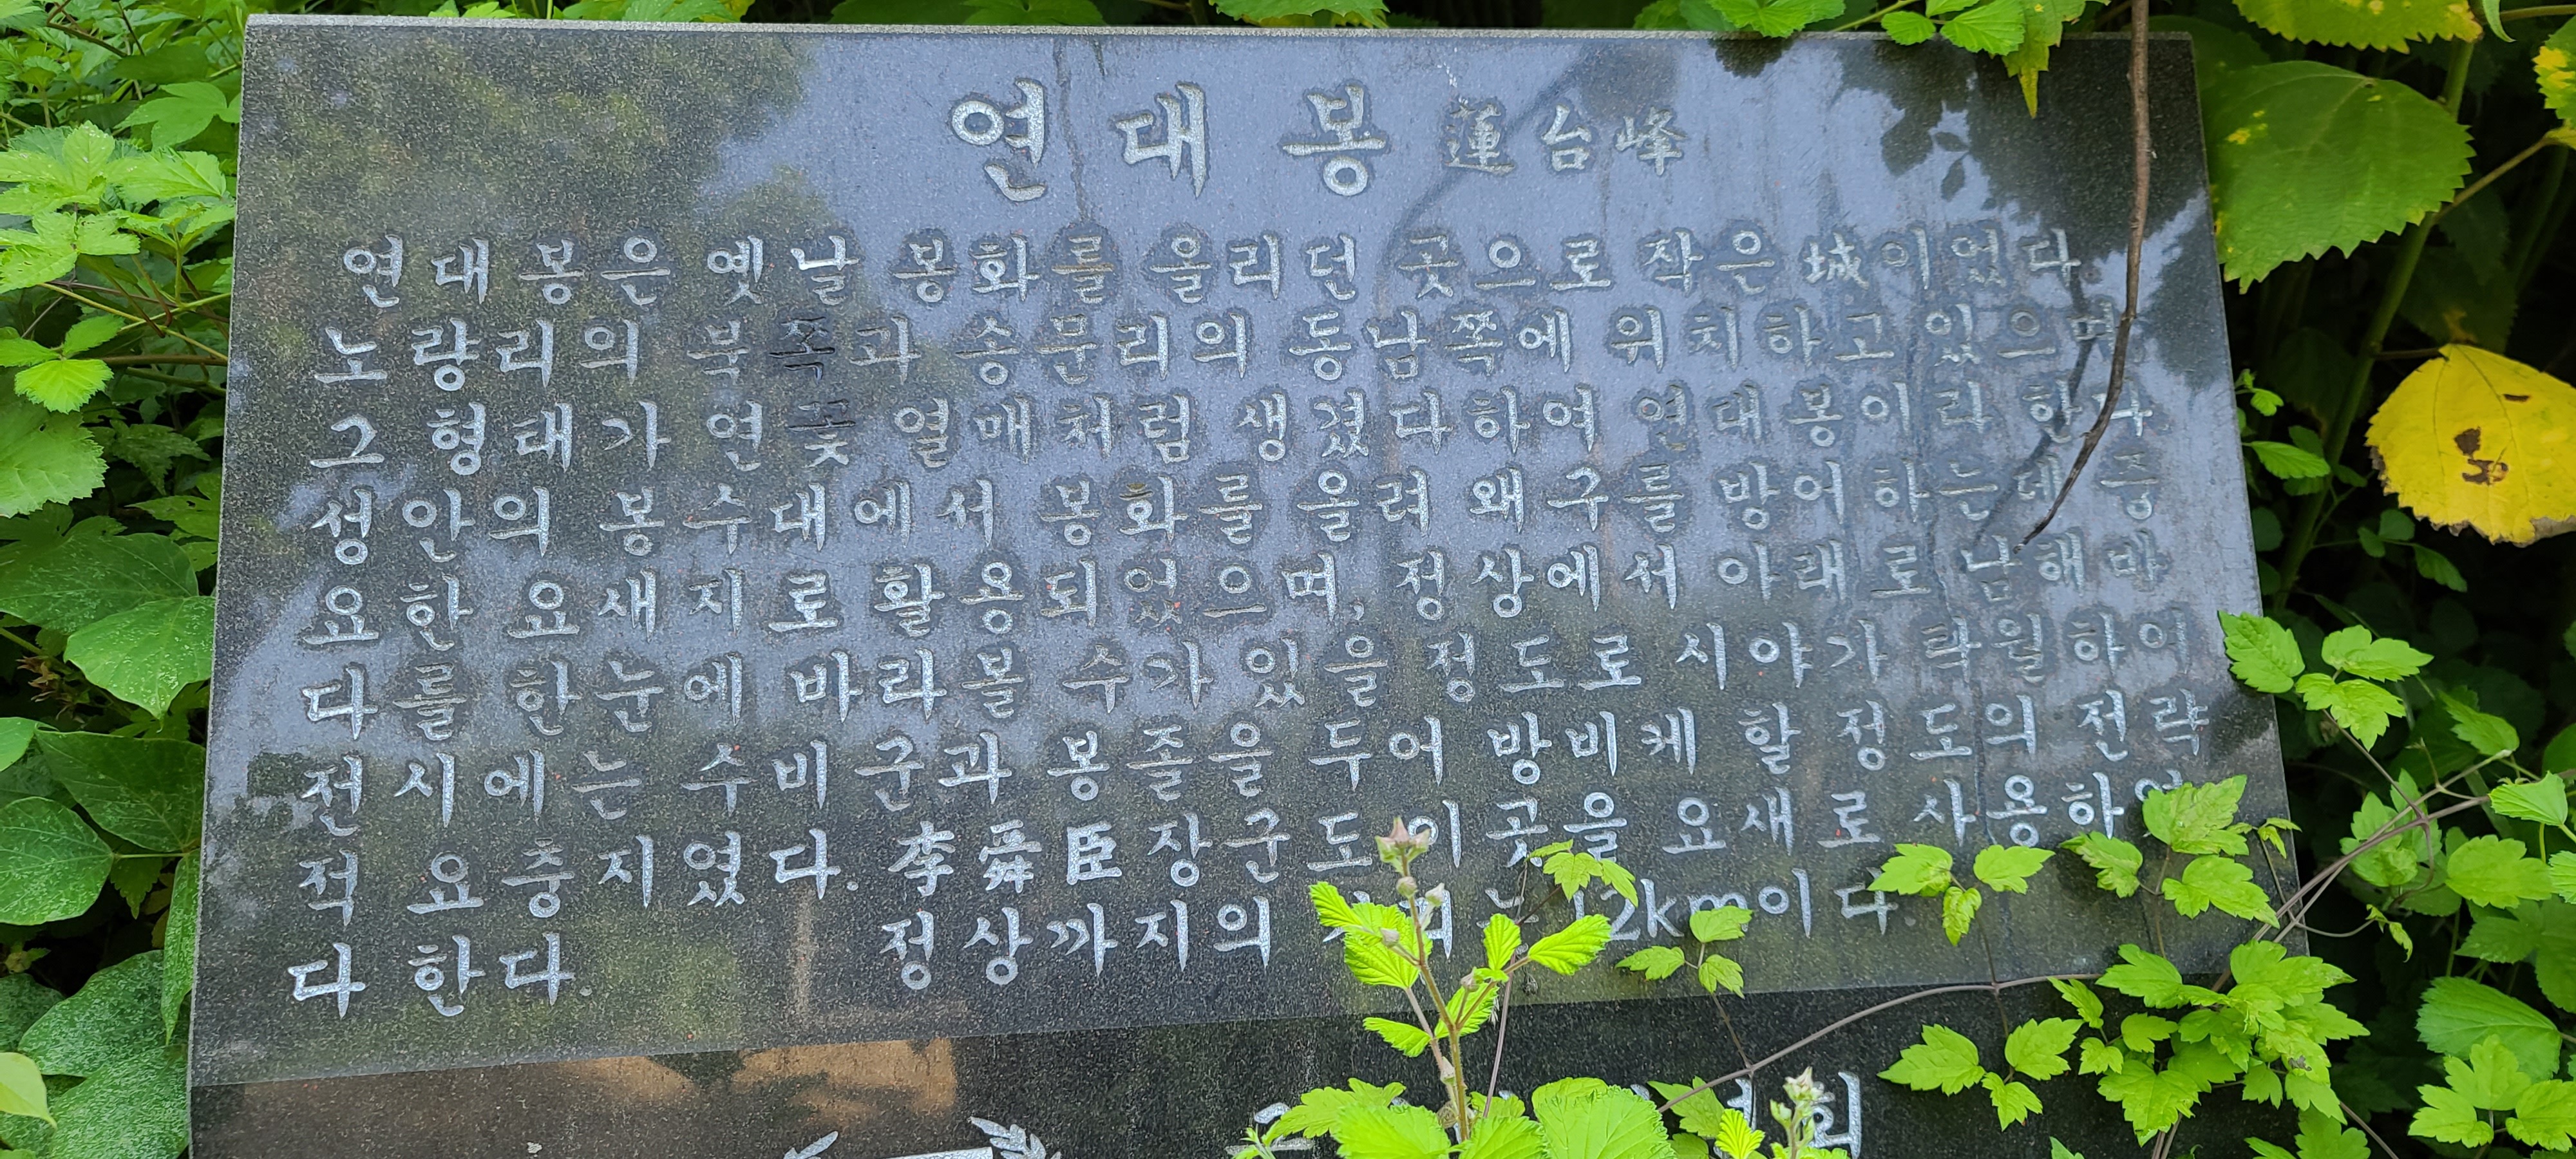 연대봉 蓮台峰
연대봉은 옛날 봉화를 올리던 곳으로 작은 城이었다.
노량리의 북쪽과 송문리의 동남쪽에 위치하고 있으며,
그 형태가 연꽃 열매처럼 생겼다하여 연대봉이라 한다
성안의 봉수대에서 봉화를 올려 왜구를 방어하는데 중
요한 요새지로 활용되었으며, 정상에서 아래로 남해바
다를 한눈에 바라볼 수가 있을 정도로 시야가 탁월하여
전시에는 수비군과 봉졸을 두어 방비케 할 정도의 전략
적 요충지였다. 李舜臣장군도 이곳을 요새로 사용하였
다 한다. 정상까지의